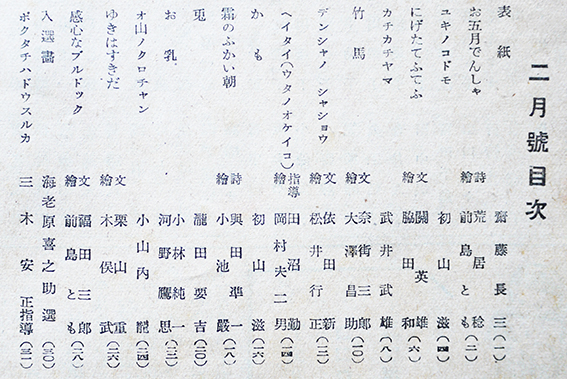 二月號目次
表紙 齋藤長三(一)
お五月でんしゃ 詩 荒居稔 繪 前島とも(二)
ユキノコドモ 初山滋(四)
にげたてふてふ 文 關英雄 繪 脇田和(六)
カチカチヤマ 武井武雄(八)
竹馬 文 奈街三郎 繪 大澤昌助(一〇)
デンシャノシャショウ 文 依田新 繪 松井行正(一二)
ヘイタイ(ウタノオケイコ) 指導 田沼勤 繪 岡村夫二男(一四)
かも 初山滋(一六)
霜のふかい朝 詩 與田凖一 繪 小池巖(一八)
兎 瀧田要吉(二〇)
お乳 小林純一 河野鷹思(二二)
オ山ノクロチャン 小山内龍(二四)
ゆきはすきだ 文 栗山重 繪 木俣武(二六)
感心なブルドック 文 福田三郎 繪 前島とも(二八)
入選畫 海老原喜之助選(三〇)
ボクタチハドウスルカ 三木安正指導(三二)